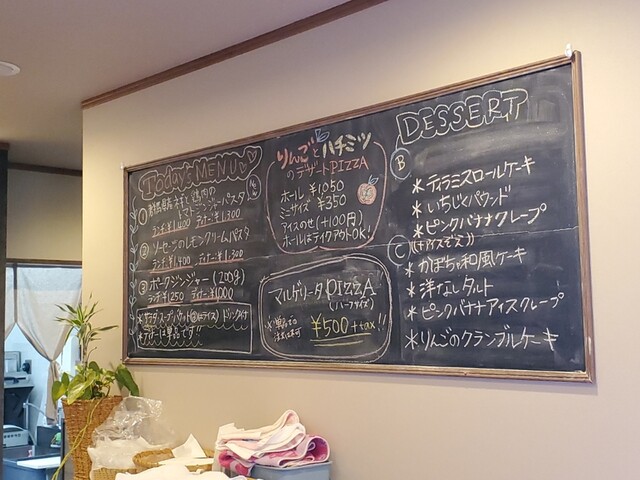 Today's MENU
トマトジンジャーパスタ
ランチ¥1400 ディナー¥1300
② ソーセージのレモンクリームパスタ
ランチ¥1400 ディナー¥1300
③ ポークジンジャー(200g)
ディナー¥1000
*ディナーは単品です!!
りんごとハチミツ
のデザートPIZZA
ホール ¥1050
ミニサイズ ¥350
アイスのせ(+100円)
ホールはテイクアウトOK!
マルゲリータPIZZA
(ハーフサイズ)
¥500+tax!!
DESSERT
B
*ティラミスロールケーキ
*いちじくパウンド
*ピンクバナナクレープ
C
*かぼちゃ和風ケーキ
*洋なしタルト
*ピンクバナナアイスクレープ
*りんごのクランブルケーキ